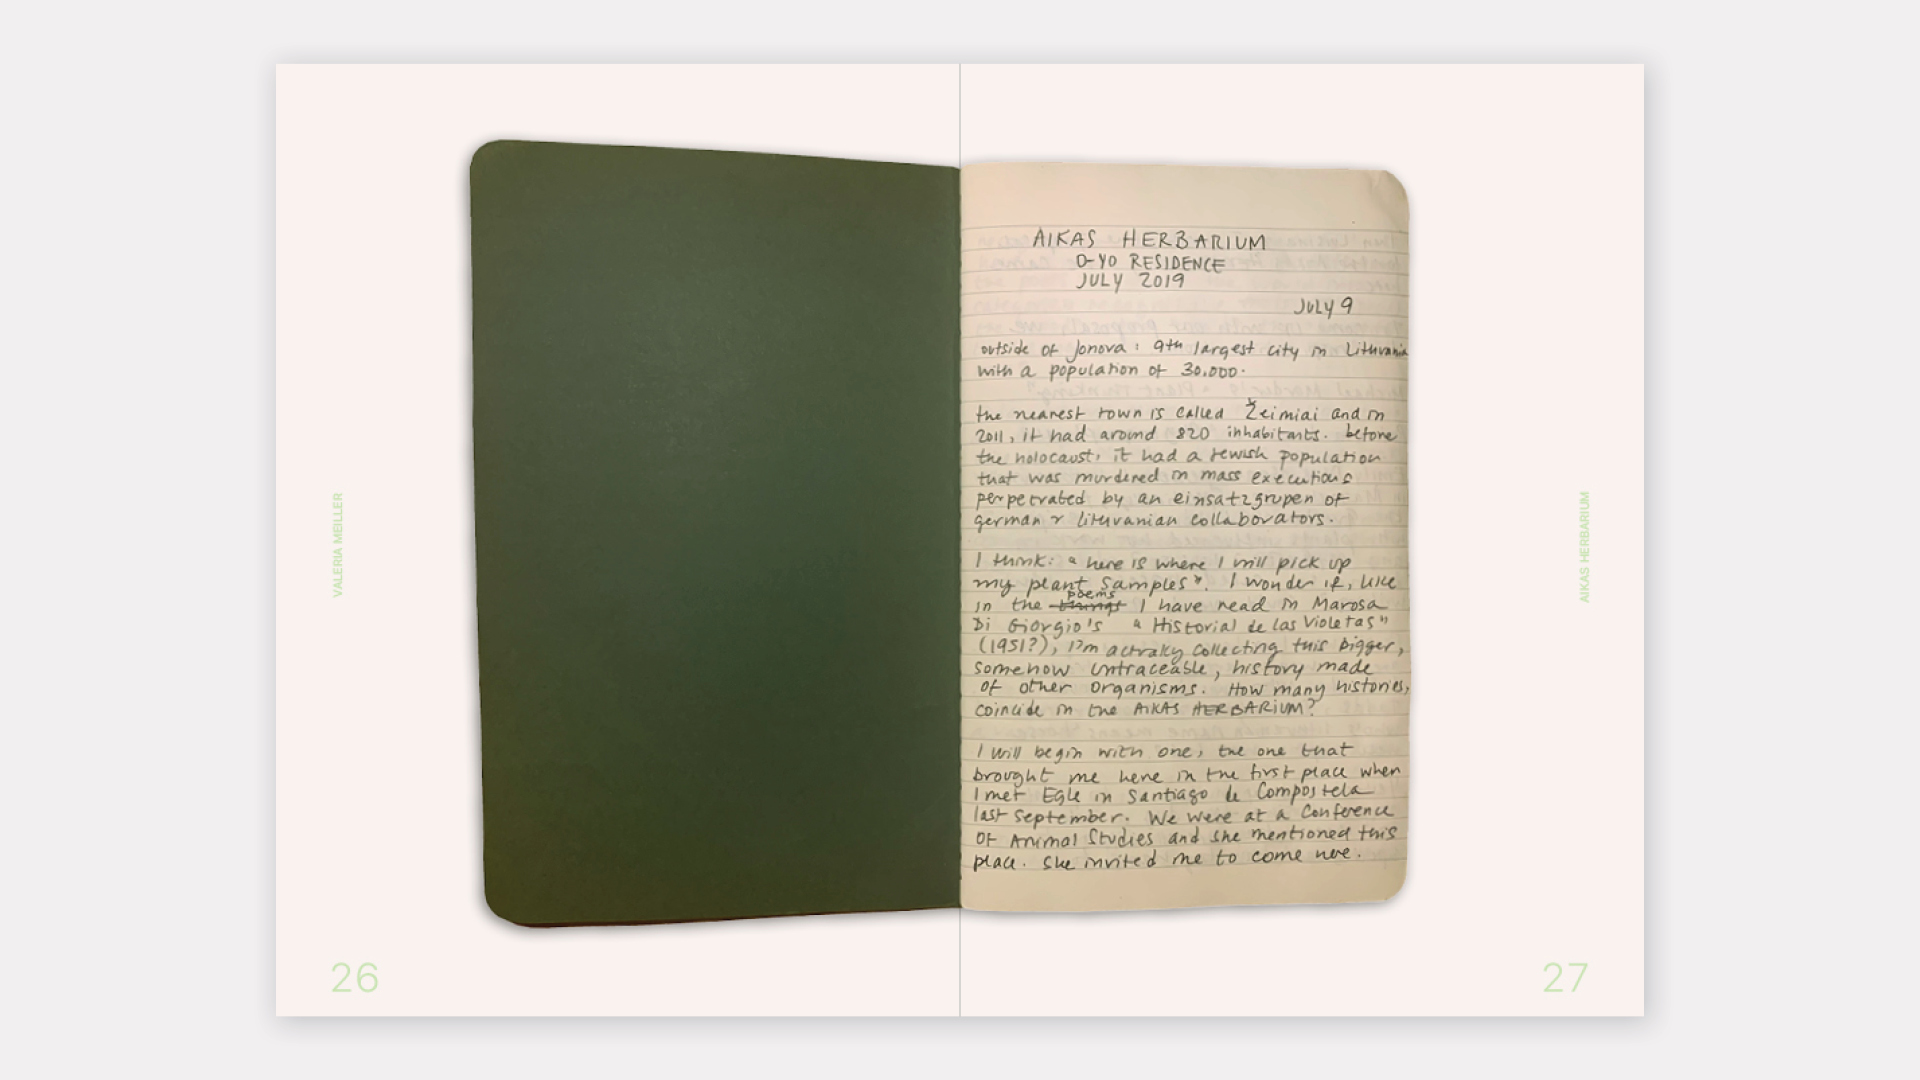 VALERIA MEILLER
26
AIKAS HERBARIUM
O-YO RESIDENCE
JULY 2019
JULY 9
outside of Jonova: 9th largest city in Lituvania
with a population of 30.000.
the nearest town is called Žeimiai and in
2011, it had around 820 inhabitants. before
the holocaust, it had a jewish population
that was murdered in mass executions
perpetrated by an einsatzgrupen of
german & lituvanian collaborators.
I think: "here is where I will pick up
my plant samples". I wonder if, like
in the things poems I have read in Marosa
Di Giorgio's "Historial de las Violetas"
(1951?), I'm actually collecting this bigger,
somehow untraceable, history made
of other organisms. How many histories,
coincide in the AIKAS HERBARIUM?
I will begin with one, the one that
brought me here in the first place when
I met Egle in Santiago de Compostela
last September. We were at a Conference
of Animal Studies and she mentioned this
place. She invited me to come here.
AIKAS HERBARIUM
27